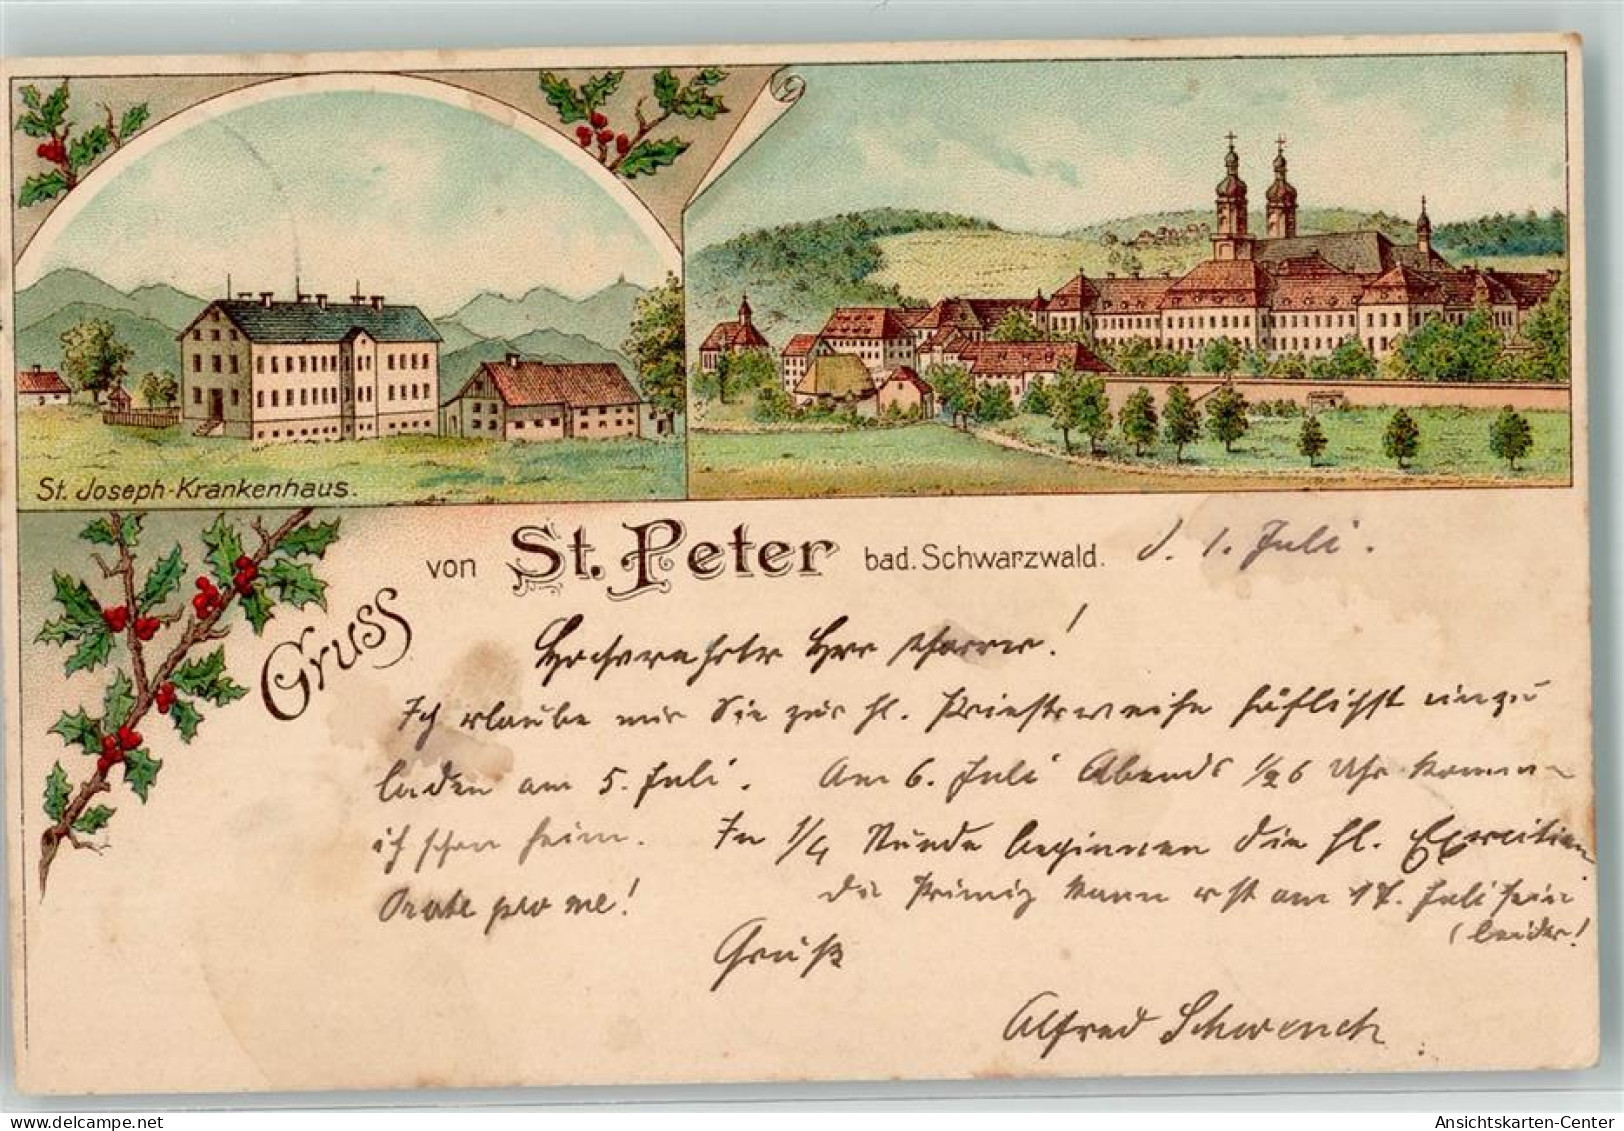 St. Joseph-Krankenhaus.
Gruss von St. Peter bad. Schwarzwald. d. 1. Juli.
Hochverehrter Herr Pfarrer!
Ich erlaube mir Sie zur hl. Priesterweihe höflichst einzu
laden am 5. Juli. Am 6. Juli Abends 1/2 6 Uhr komme
ich schon heim. In 1/4 Stunde beginnen die hl. Exercitien
Orate pro me! Die Primiz kann erst am 17. Juli sein
(leider!
Gruß
Alfred Schwenck
delcampe.net
Ansichtskarten-Center